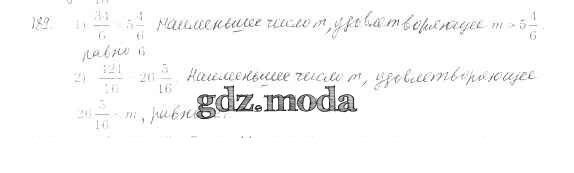 189. 1) 34/6 = 5 4/6. Наименьшее число m, удовлетворяющее m > 5 4/6,
равно 6.
2) 421/16 = 26 5/16. Наименьшее число m, удовлетворяющее
gdz.moda
26 5/16 < m, равно 27.